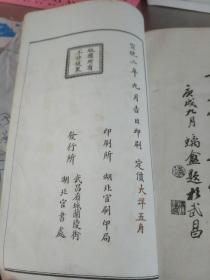 宣統二年九月吉日印刷 定價大洋五角
印刷所 湖北官刷印局
發行所 武昌省城蘭陵街
湖北官書處
版權所有
不許複製
庚戌九月
盦題於武昌